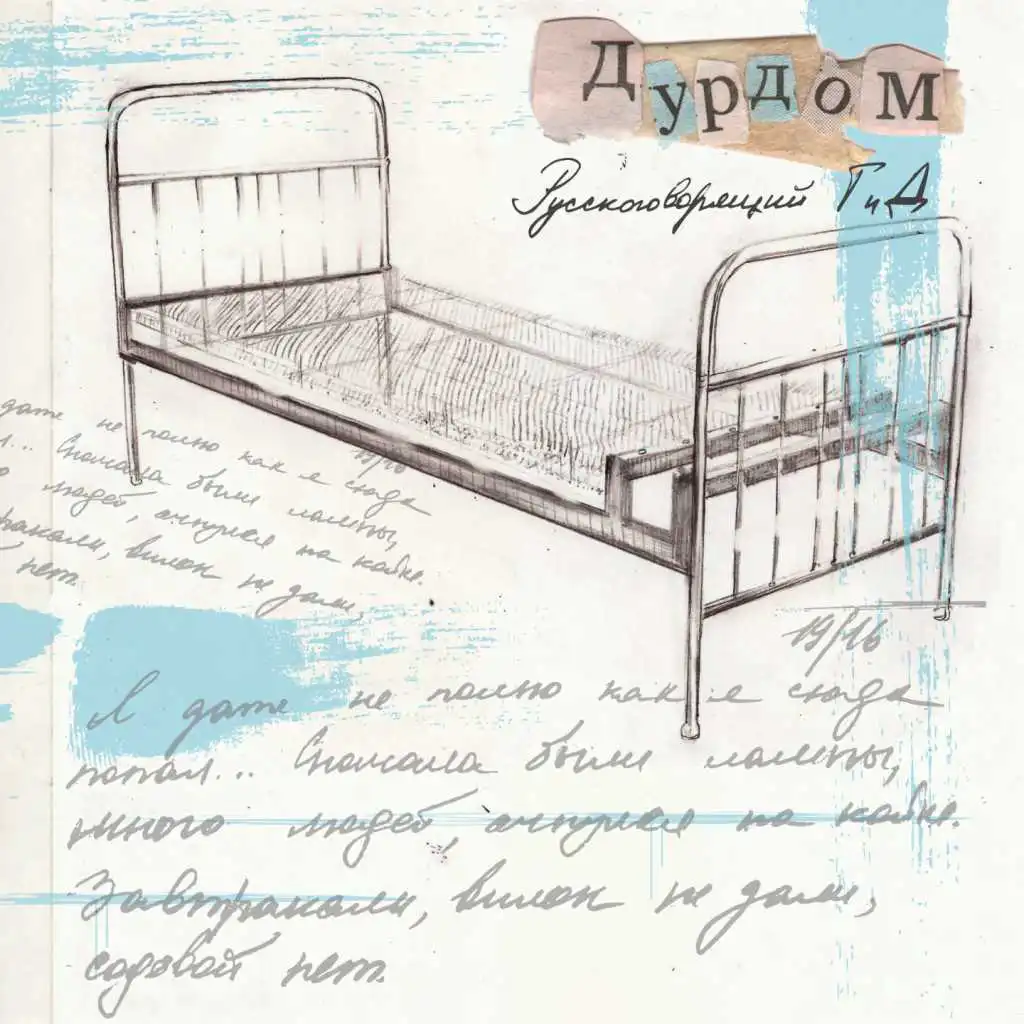 Дурдом
Русскоговорящий ГиД
дате не помню как я сюда
19/16
л... Сначала были лампы,
людей, очнулся на койке.
тракали, вилок не дали,
нет.
19/16
Я даже не помню как я сюда
попал... Сначала были лампы,
много людей, очнулся на койке.
Завтракали, вилок не дали,
содовой нет.